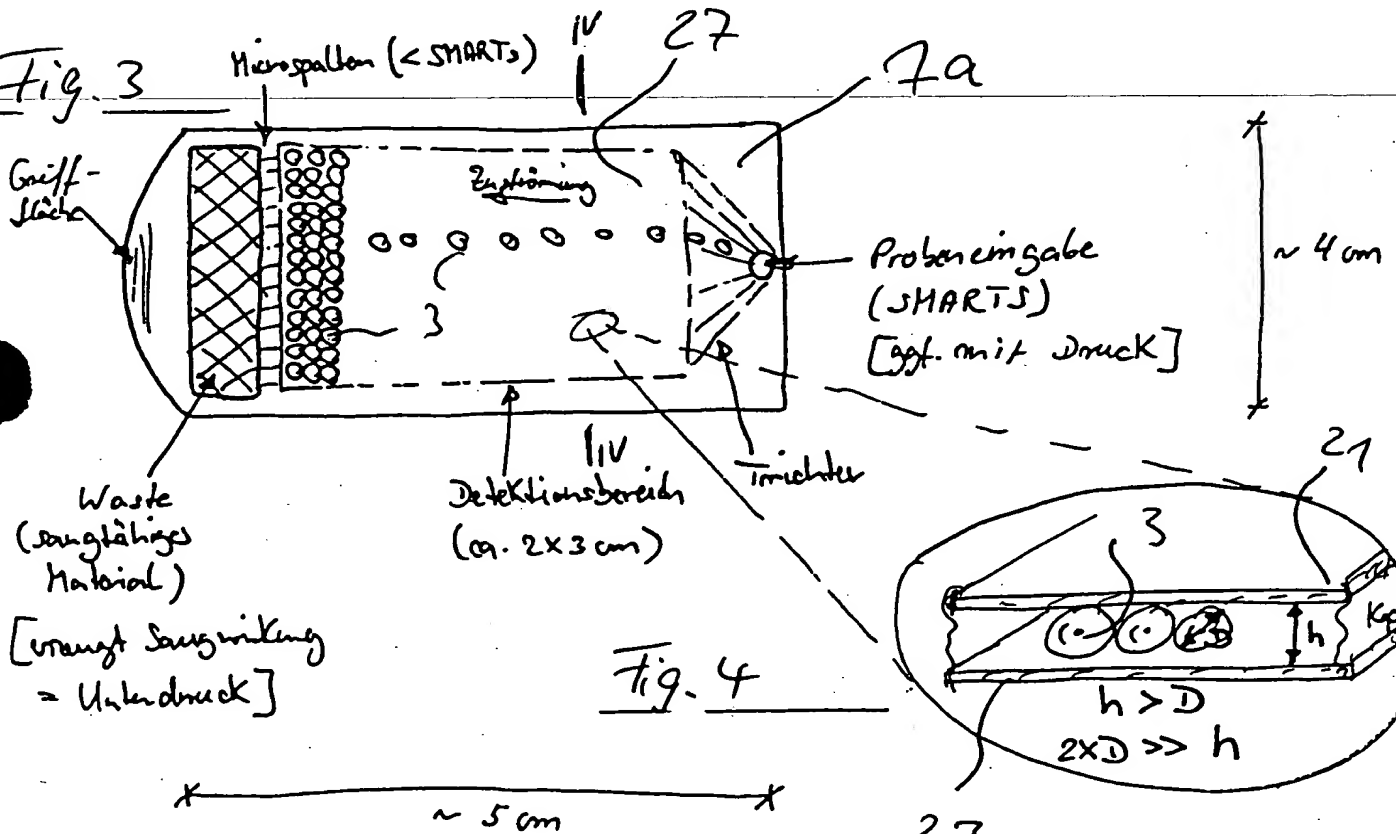 Fig. 3
Microspalten (< SMARTs)
IV
27
7a
Griff-
fläche
Zuströmung
3
Probeneingabe
(SMARTS)
[ggf. mit Druck]
~ 4 cm
IV
Waste
(saugfähiges
Material)
[erzeugt Saugwirkung
= Unterdruck]
Detektionsbereich
(ca. 2x3 cm)
Trichter
21
3
D
h
h > D
2xD >> h
Fig. 4
~ 5 cm
27